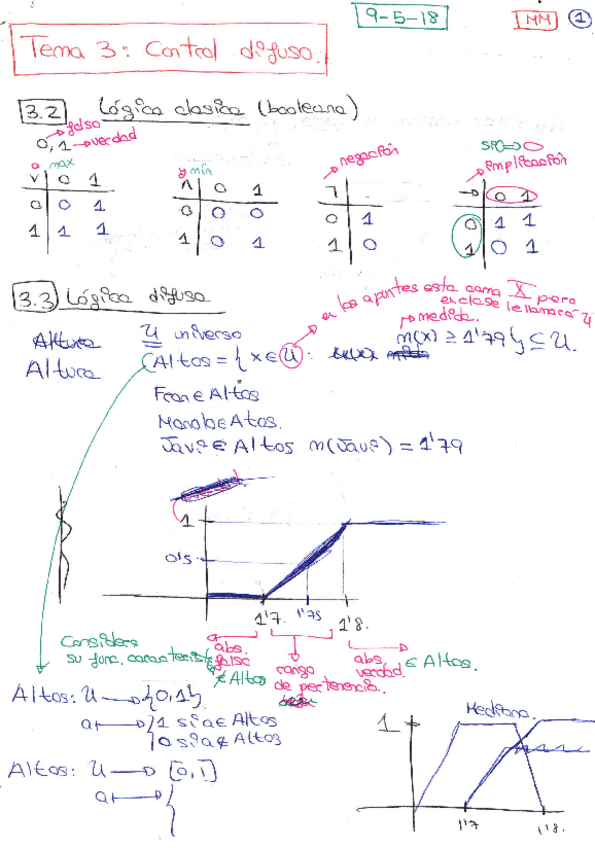 9-5-18
MM 1
Tema 3: Control difuso.
3.2 Lógica clasica (booleana)
0, 1 → falso → verdad
o max
v 0 1
0 0 1
1 1 1
y min
∧ 0 1
0 0 0
1 0 1
→ negación
¬
0 1
1 0
sii ⇒ 0
→ implicación
→ 0 1
0 1 1
1 0 1
3.3 Lógica difusa
en los apuntes esta como X pero
en clase le llamará U
→ medida.
Altura U universo
Altura Altos = { x ∈ U : m(x) ≥ 1'79 } ⊆ U.
Fran ∈ Altos
Manolo ∈ Atos.
Javi ∈ Altos m(Javi) = 1'79
1
0'5
1'7. 1'75 1'8.
Considera
su func. caracterist
abs.
falso
∉ Altos
rango
de pertenencia.
abs.
verdad.
∈ Altos.
Altos: U → {0,1}
a ↦ { 1 si a ∈ Altos
0 si a ∉ Altos
Altos: U → [0,1]
a ↦ {
Mediana.
1
1'7 1'8.